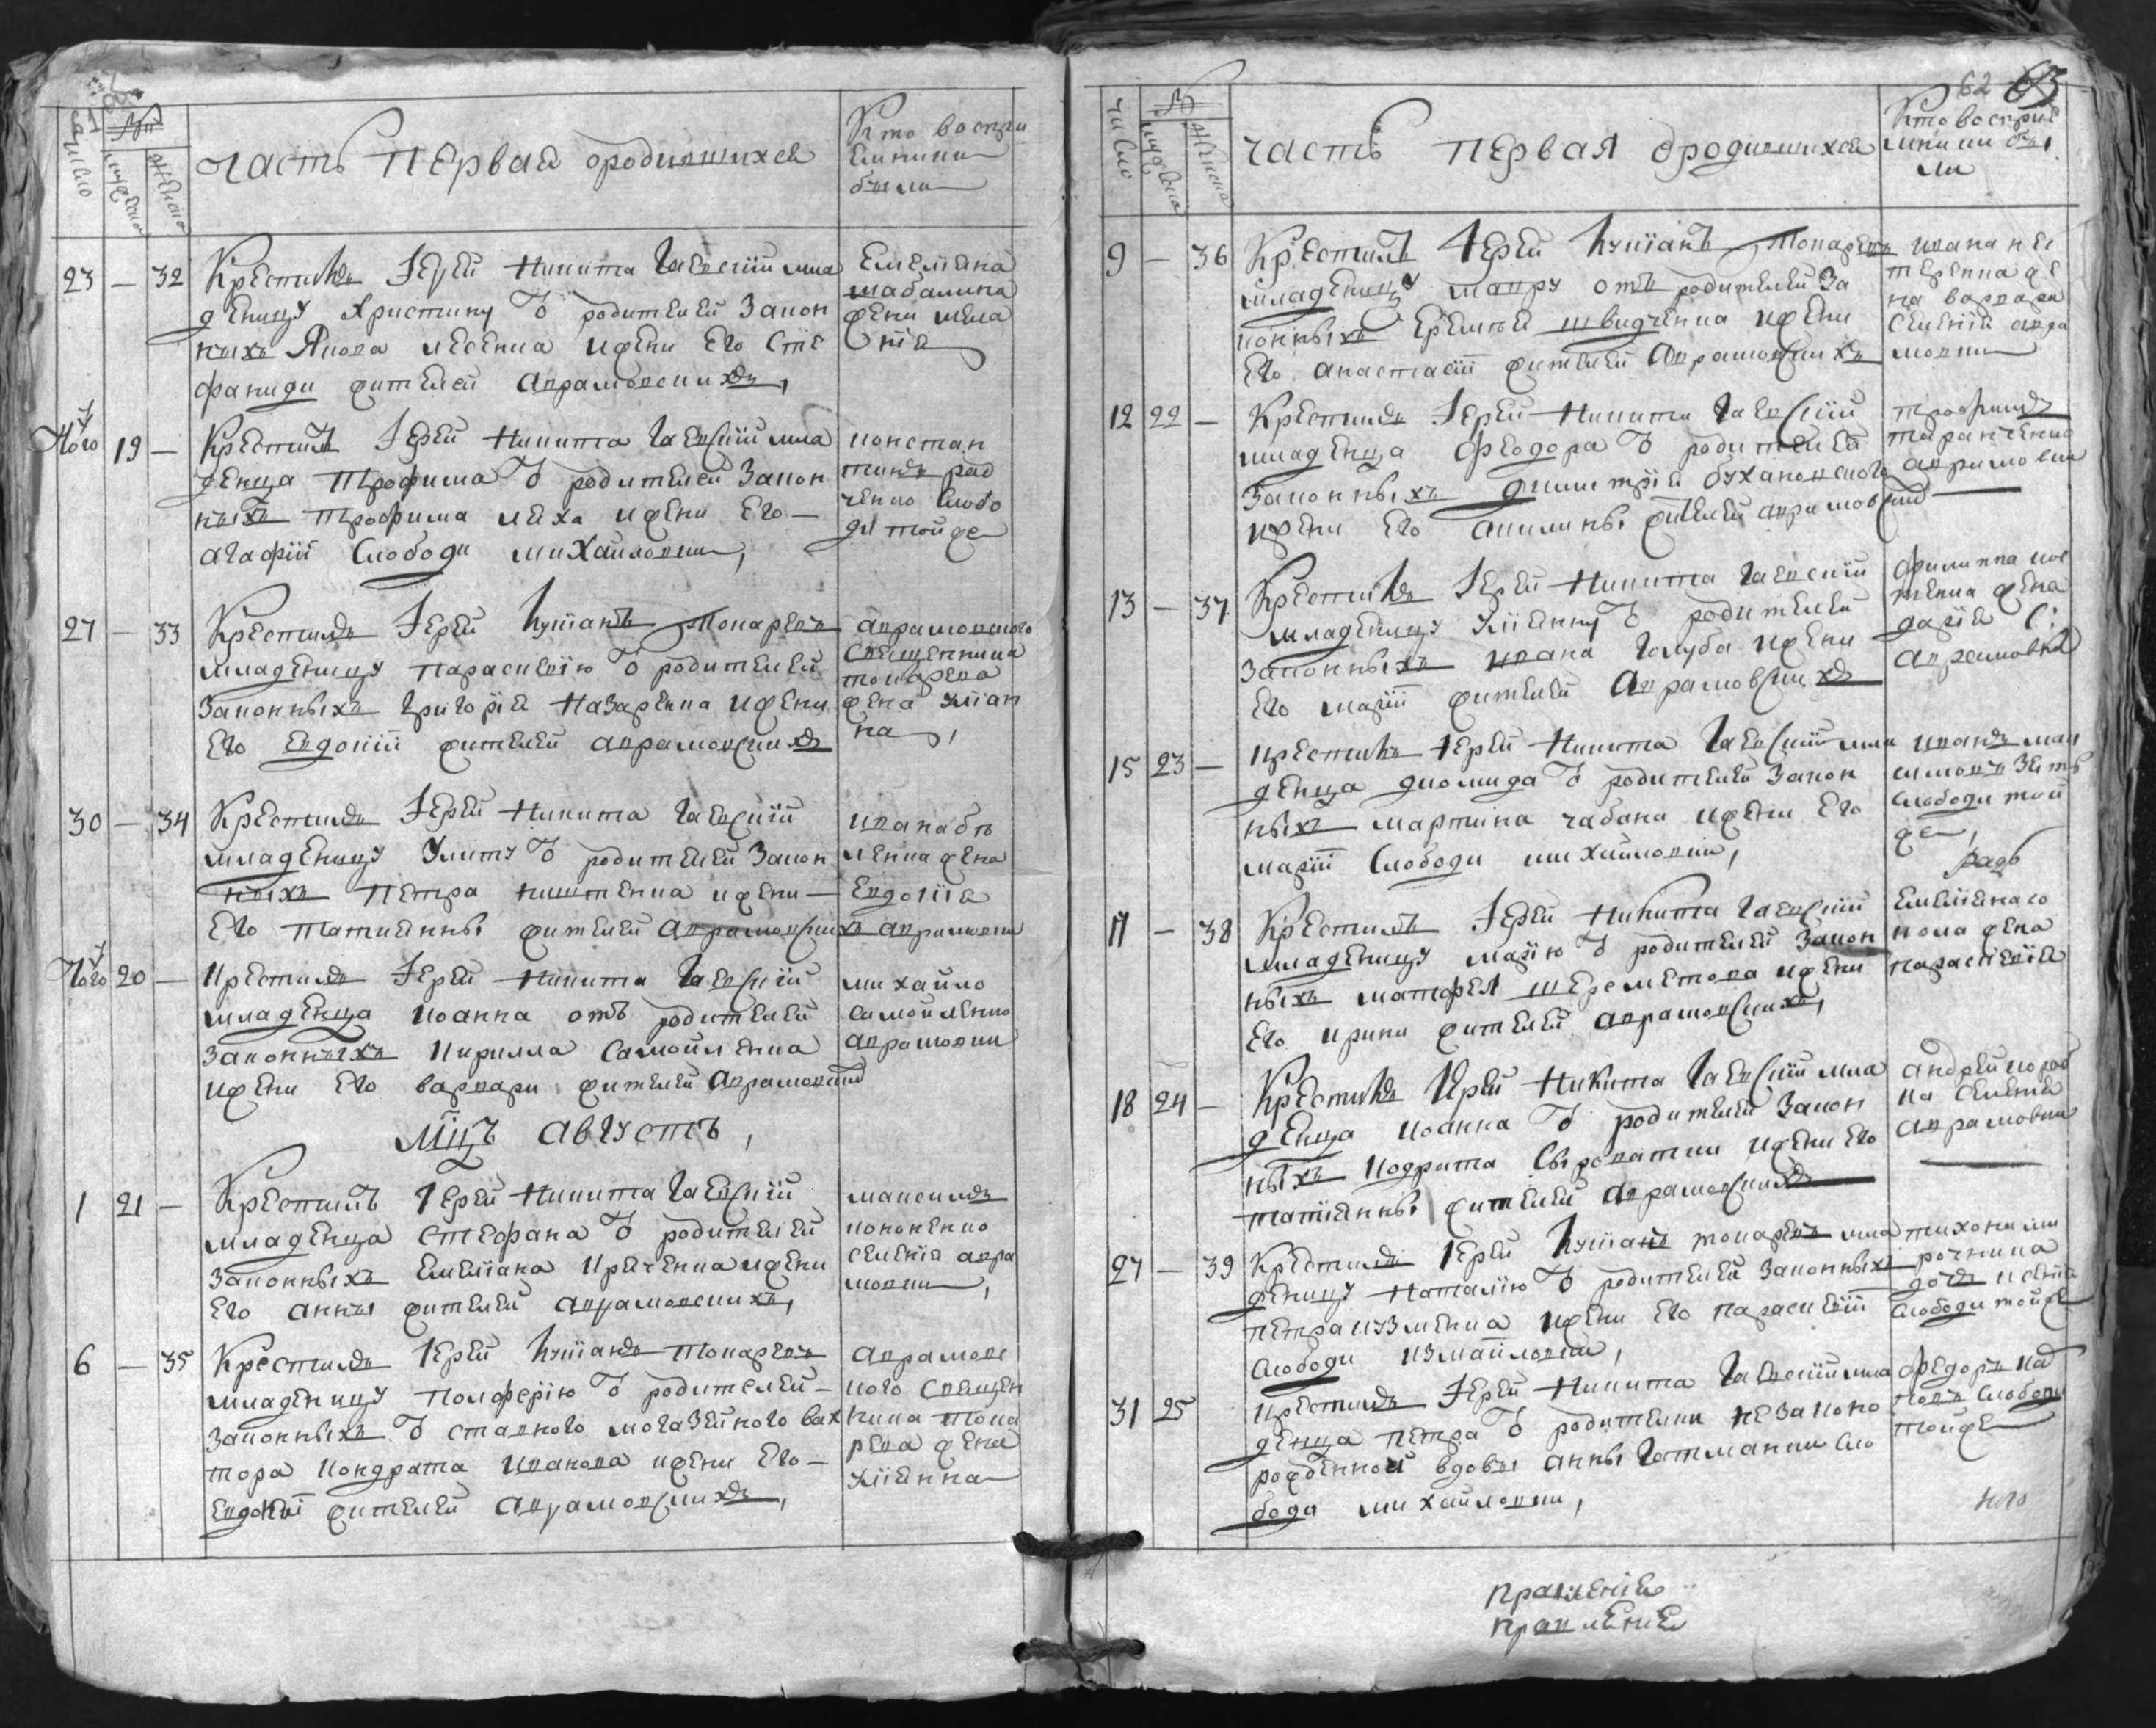 число
№
мужеска
женска
часть первая о родившихся
Кто воспри
емники
были
23 — 32 Крестилъ Іерей Никита Гаевскій мла
деницу Христину ѿ родителей закон
ныхъ Якова лесенка и жени его Сте
фаниди жителей аврамовскихъ,
Емелiана
шабалика
жени мела
нiя
Того 19 — Крестилъ Іерей Никита Гаевскій мла
денца Трофима ѿ родителей закон
ныхъ трофима леха и жени его —
агафіи Слободи михайловки,
констан
тинъ рад
ченко слобо
ди тойже
27 — 33 Крестилъ Іерей Кумiанъ Токаревъ
младеницу параскевiю ѿ родителей
законныхъ григорiя Назаренка и жени
его евдокiи жителей аврамовскихъ
аврамовского
священника
токарева
жена улiан
на,
30 — 34 Крестилъ Іерей Никита Гаевскій
младеницу Улиту ѿ родителей закон
ныхъ петра никитенка и жени —
его татиянны жителей аврамовскихъ
ивана бѣ
ленка жена
евдокiя
аврамовки
Того 20 — Крестилъ Іерей Никита Гаевскій
младенца иоанна отъ родителей
законныхъ Кирилла самойленка
и жени его варвари жителей аврамовки
михайло
самойленко
аврамовки
мцъ августъ,
1 21 — Крестилъ Іерей Никита Гаевскій
младенца стефана ѿ родителей
законныхъ емелiана Кравченка и жени
его анны жителей аврамовскихъ,
максимъ
кононенко
селенiя авра
мовки,
6 — 35 Крестилъ Іерей Кумiанъ Токаревъ
младеницу полферiю ѿ родителей —
законныхъ ѿ ставного могазейного вах
тора Кондрата иванова и жени его —
евдокiи жителей аврамовскихъ,
аврамовс
кого священ
ника тока
рева жена
улiянна
62 63
число
№
мужеска
женска
часть первая о родившихся
Кто воспрiе
мники бы
ли
9 — 36 Крестилъ Іерей Кумiанъ Токаревъ
младеницу мавру отъ родителей за
конныхъ еремѣя швидченка и жени
его анастасiи жителей аврамовскихъ
ивана не
теренка же
на варвара
селенiя авра
мовки
12 22 — Крестилъ Іерей Никита Гаевскій
младенца феодора ѿ родителей
законныхъ димитрiя бухановского
и жени его акилины жителей аврамовки
трофимъ
таранченко
аврамовки
13 — 37 Крестилъ Іерей Никита Гаевскій
младеницу улiянну ѿ родителей
законныхъ ивана голуба и жени
его марiи жителей аврамовскихъ
филиппа кос
тенка жена
дарiя С:
аврамовки
15 23 — Крестилъ Іерей Никита Гаевскій мла
денца диомида ѿ родителей закон
ныхъ мартина чабана и жени его
марiи слободи михайловки,
иванъ мак
симовъ зять
слободи той
же,
17 — 38 Крестилъ Іерей Никита Гаевскій
младеницу марiю ѿ родителей закон
ныхъ матфея шереметова и жени
его ирини жителей аврамовскихъ,
емелiяна со
кола жена
параскевiя
18 24 — Крестилъ Iерей Никита Гаевскій мла
денца иоанна ѿ родителей закон
ныхъ кодрата сыроватки и жени его
татiянны жителей аврамовскихъ
андрей короб
ка селенiя
аврамовки
27 — 39 Крестилъ Іерей Кумiанъ токаревъ мла
деницу Наталiю ѿ родителей законныхъ
петра кузменка и жени его параскевiи
слободи измайловки,
тихона ми
рочника
дочь ксенiя
слободи тойже
31 25 Крестилъ Іерей Никита Гаевскій мла
денца петра ѿ родителки незаконо
рожденной вдовы анны гатманки сло
боди михайловки,
федоръ
слободи
тойже
правленiе
правленiе